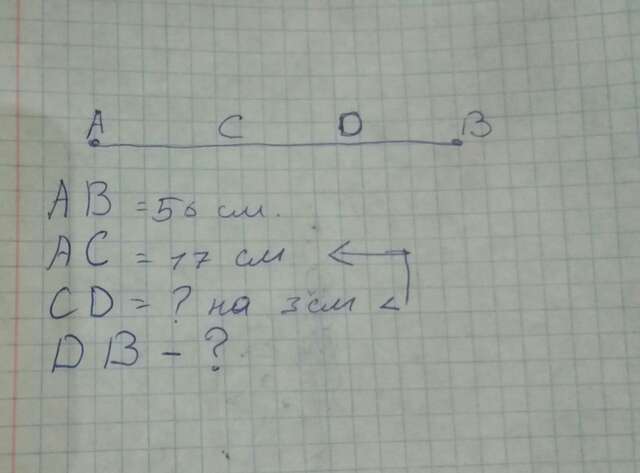 A C D B
AB = 56 см.
AC = 17 см
CD = ? на 3 см <
DB - ?